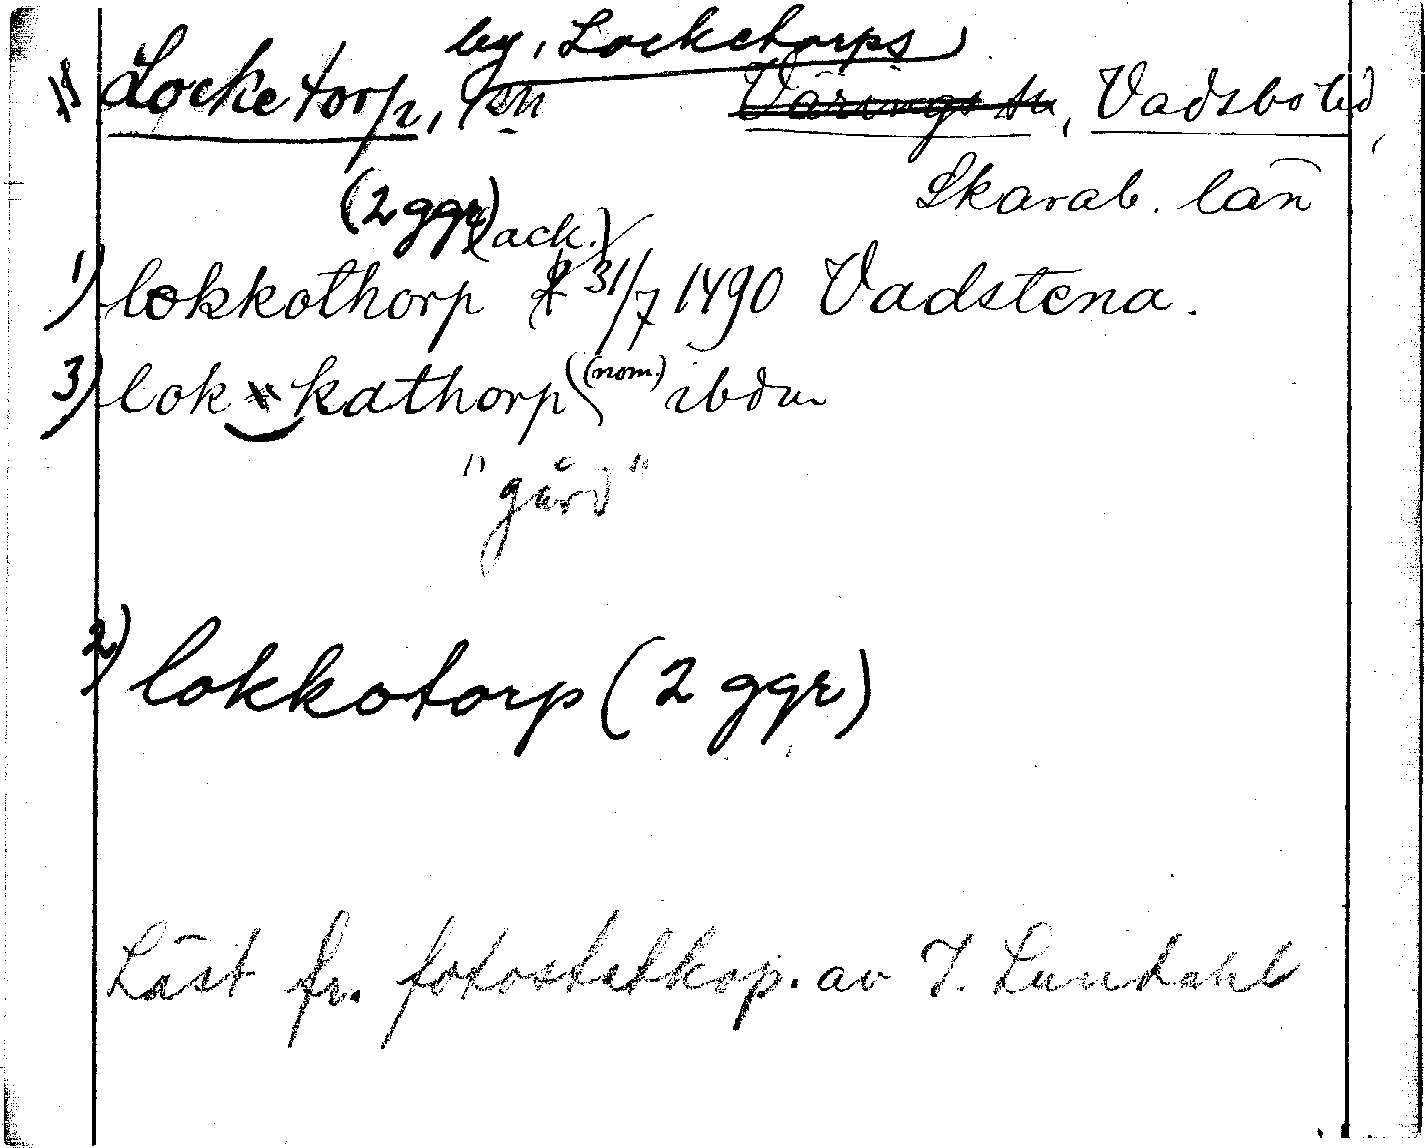 by, Locketorps
Locketorp, sn Värings sn, Vadsbo hd
Skarab. län
(2 ggr) (ack.)
1) lokkothorp 31/7 1490 Vadstena.
3) lok kathorp (nom.) ibdm
"gård"
2) lokkotorp (2 ggr)
Läst fr. fotostatkop. av I. Lundahl